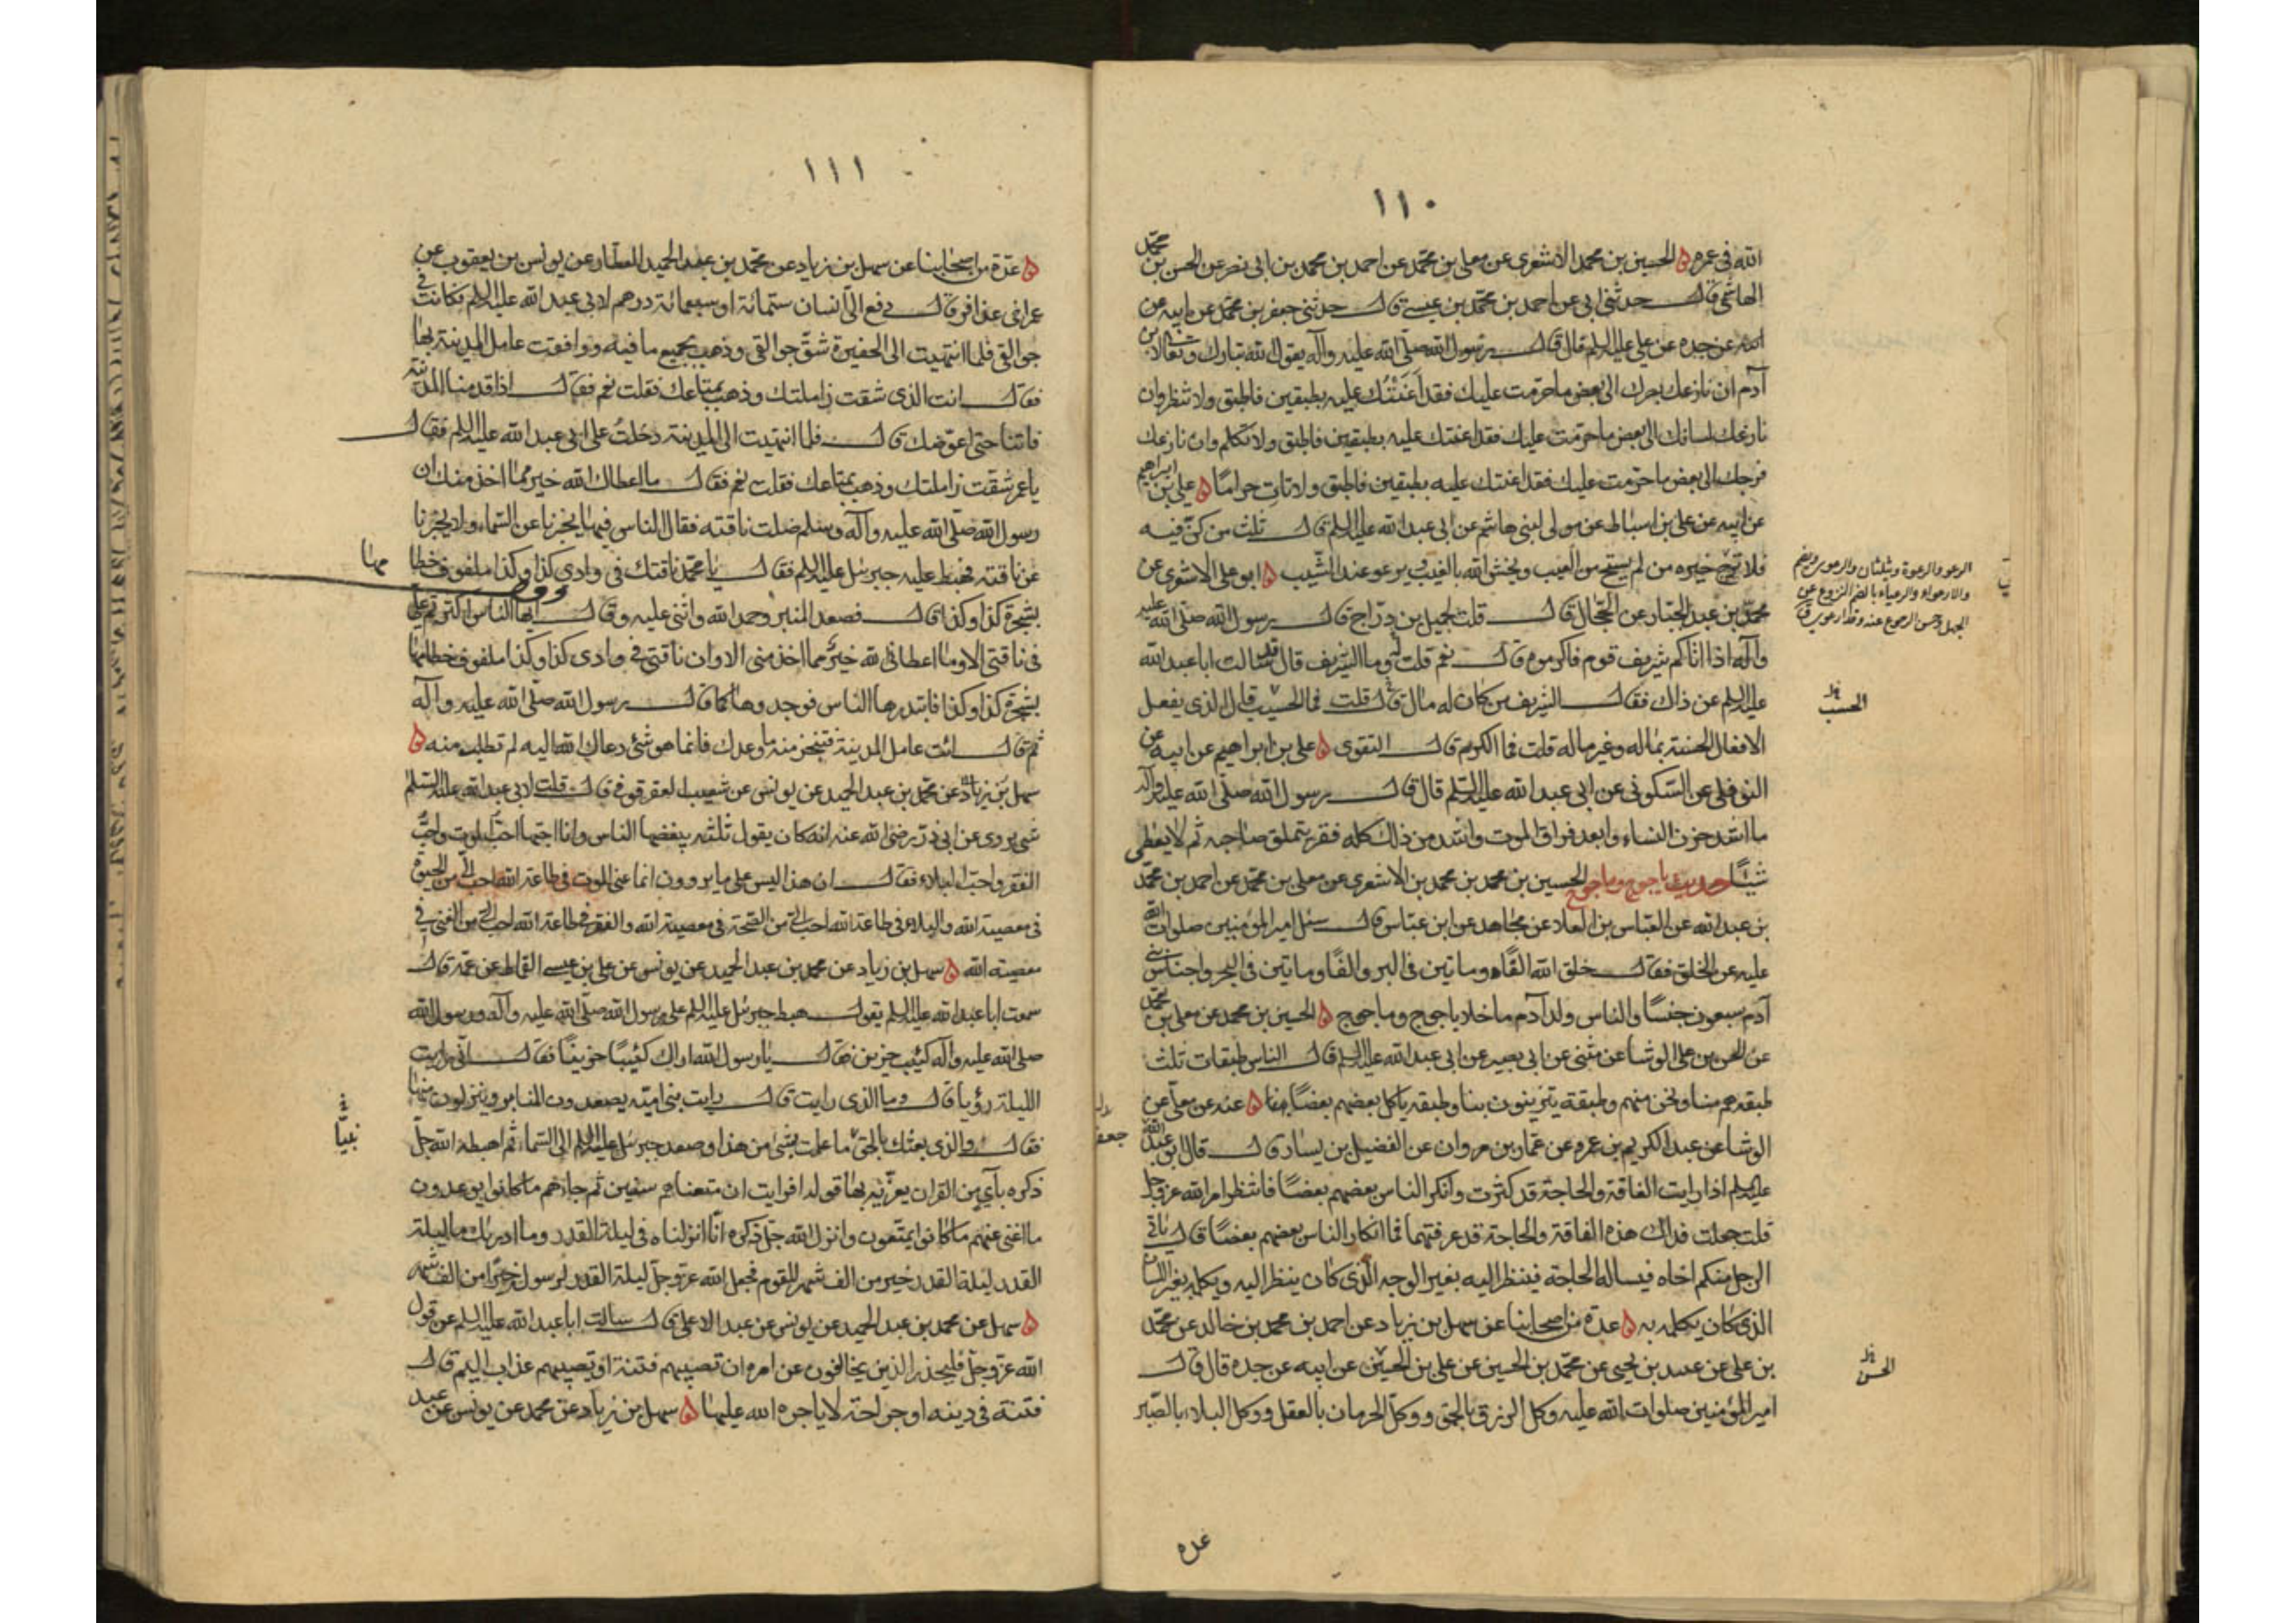 ١١٠
الله في عمره ه الحسين بن محمد الاشعري عن معلى بن محمد عن احمد بن محمد بن ابي نصر عن الحسن بن محمد
الهاشمي قال حدثني ابي عن احمد بن محمد بن عيسى قال حدثني جعفر بن محمد عن ابيه عن
ابيه عن جده عن علي عليه السلم قال قال رسول الله صلّى الله عليه وآله يقول الله تبارك وتعالى لابن
آدم ان نازعك بصرك الى بعض ما حرّمت عليك فقد اَعَنْتُك عليه بطبقين فاطبق ولا تنظر وان
نازعك لسانك الى بعض ما حرّمت عليك فقد اعنتك عليه بطبقين فاطبق ولا تكلم وان نازعك
فرجك الى بعض ما حرّمت عليك فقد اعنتك عليه بطبقين فاطبق ولا تات حرامًا ه علي بن ابراهيم
عن ابيه عن علي بن اسباط عن مولى لبني هاشم عن ابي عبد الله عليه السلم قال ثلث من كنّ فيه
فلا ترج خيره من لم يستح من العيب ويخش الله بالغيب ويرعو عند الشيب ه ابو علي الاشعري عن
محمد بن عبد الجبار عن الحجال قال قلت لجميل بن درّاج قال رسول الله صلّى الله عليه
وآله اذا اتاكم شريف قوم فاكرموه قال نعم قلت له وما الشريف قال قد سالت ابا عبد الله
عليه السلم عن ذلك فقال الشريف من كان له مال قال قلت فما الحسيب قال الذي يفعل
الافعال الحسنة بماله وغير ماله قلت فما الكرم قال التقوى ه علي بن ابراهيم عن ابيه عن
النوفلي عن السّكوني عن ابي عبد الله عليه السّلم قال قال رسول الله صلّى الله عليه وآله
ما اشد حزن النساء وابعد فراق الموت واشد من ذلك كله فقر يتملق صاحبه ثم لا يعطى
شيئًا حديث ياجوج وماجوج الحسين بن محمد بن محمد بن الاشعري عن معلى بن محمد عن احمد بن محمد
بن عبد الله عن العباس بن العلاء عن مجاهد عن ابن عباس قال سئل امير المؤمنين صلوات الله
عليه عن الخلق فقال خلق الله الفًا وماتين في البر والفًا وماتين في البحر واجناس بني
آدم سبعون جنسًا والناس ولد آدم ما خلا ياجوج وماجوج ه الحسين بن محمد عن معلى بن محمد
عن الحسن بن علي الوشا عن مثنى عن ابي بصير عن ابي عبد الله عليه السلم قال الناس طبقات ثلث
طبقة هم منا ونحن منهم وطبقة يتزينون بنا وطبقة ياكل بعضهم بعضًا بنا ه عنه عن معلى عن
الوشا عن عبد الكريم بن عمرو عن عمار بن مروان عن الفضيل بن يسار قال قال ابو عبد الله
عليه السلم اذا رايت الفاقة والحاجة قد كثرت وانكر الناس بعضهم بعضًا فانتظر امر الله عز وجل
قلت جعلت فداك هذه الفاقة والحاجة قد عرفتهما فما انكار الناس بعضهم بعضًا قال ياتي
الرجل منكم اخاه فيساله الحاجة فينظر اليه بغير الوجه الذي كان ينظر اليه ويكلمه بغير اللسان
الذي كان يكلمه به ه عدة من اصحابنا عن سهل بن زياد عن احمد بن محمد بن خالد عن محمد
بن علي عن عبيد بن يحيى عن محمد بن الحسين عن علي بن الحسين عن ابيه عن جده قال قال
امير المؤمنين صلوات الله عليه وكل الرزق بالحمق ووكل الحرمان بالعقل ووكل البلاء بالصّبر
الحسب
الحسن
عده
١١١
ه عدّة من اصحابنا عن سهل بن زياد عن محمد بن عبد الحميد العطّار عن يونس بن يعقوب عن
عمر اخي عذافر قال دفع الىّ انسان ستمائة او سبعمائة درهم لابي عبد الله عليه السلم فكانت في
جوالقي فلما انتهيت الى الحفيرة شقّ جوالقي وذهب بجميع ما فيه ووافقت عامل المدينة بها
فقال انت الذي شقت زاملتك وذهب بمتاعك فقلت نعم فقال اذا قدمنا المدينة
فاتنا حتى اعوّضك قال فلما انتهيت الى المدينة دخلت على ابي عبد الله عليه السلم فقال
يا عمر شقت زاملتك وذهب بمتاعك فقلت نعم فقال ما اعطاك الله خير مما اخذ منك ان
رسول الله صلّى الله عليه وآله وسلم ضلت ناقته فقال الناس فيها يخبرنا عن السّماء ولا يخبرنا
عن ناقته فهبط عليه جبرئيل عليه السلم فقال يا محمّد ناقتك في وادي كذا وكذا ملفوف خطامها
بشجرة كذا وكذا قال فصعد المنبر وحمد الله واثنى عليه وقال ايها الناس اكثرتم عليّ
في ناقتي الا وما اعطاني الله خيرٌ مما اخذ مني الا وان ناقتي في وادي كذا وكذا ملفوف خطامها
بشجرة كذا وكذا فابتدرها الناس فوجدوها كما قال رسول الله صلى الله عليه وآله
ثم قال ائت عامل المدينة فتنجز منه ما وعدك فانما هو شئ دعاك الله اليه لم تطلبه منه ه
سهل بن زياد عن محمد بن عبد الحميد عن يونس عن شعيب العقرقوفي قال قلت لابي عبد الله عليه السّلم
شئ يروى عن ابي ذرّ رضي الله عنه انه كان يقول ثلثه يبغضها الناس وانا احبّها احبّ الموت واحبّ
الفقر واحبّ البلاء فقال ان هذا ليس على ما يروون انما عنى الموت في طاعة الله احبّ الىّ من الحيوة
في معصية الله والبلاء في طاعة الله احب الىّ من الصّحة في معصية الله والفقر في طاعة الله احب الىّ من الغنى في
معصية الله ه سهل بن زياد عن محمد بن عبد الحميد عن يونس عن علي بن عيسى القماط عن عمّه قال
سمعت ابا عبد الله عليه السلم يقول هبط جبرئيل عليه السلم على رسول الله صلّى الله عليه وآله ورسول الله
صلى الله عليه وآله كئيب حزين فقال يا رسول الله اراك كئيبًا حزينًا فقال انّي رايت
الليلة رؤيا قال وما الذي رايت قال رايت بني اميّه يصعدون المنابر وينزلون منها
فقال والذي بعثك بالحق ما علمت بشئ من هذا وصعد جبرئيل عليه السلم الى السّماء ثم اهبطه الله جلّ
ذكره بآي من القران يعزّيه بها قوله افرايت ان متعناهم سنين ثم جاءهم ما كانوا يوعدون
ما اغنى عنهم ما كانوا يمتعون وانزل الله جلّ ذكره انّا انزلناه في ليلة القدر وما ادريك ما ليلة
القدر ليلة القدر خير من الف شهر للقوم فجعل الله عزّ وجلّ ليلة القدر لرسوله خيرًا من الف شهر
ه سهل عن محمد بن عبد الحميد عن يونس عن عبد الاعلى قال سالت ابا عبد الله عليه السلم عن قول
الله عزّ وجلّ فليحذر الذين يخالفون عن امره ان تصيبهم فتنة او يصيبهم عذاب اليم قال
فتنة في دينه او جراحة لا ياجره الله عليها ه سهل بن زياد عن محمد عن يونس عن عبد
مها
نبيًّا